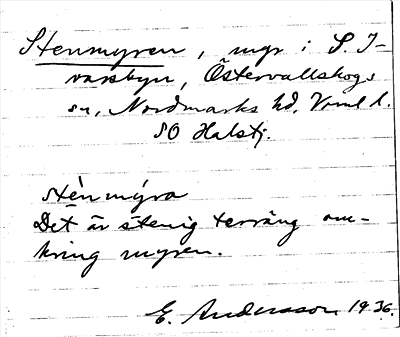 Stenmyren, myr i S. I-
varsbyn, Östervallskogs
sn, Nordmarks hd, Vrml. l.
SO Halstj.
stènmýra
Det är stenig terräng om-
kring myren.
E. Andersson 1936.